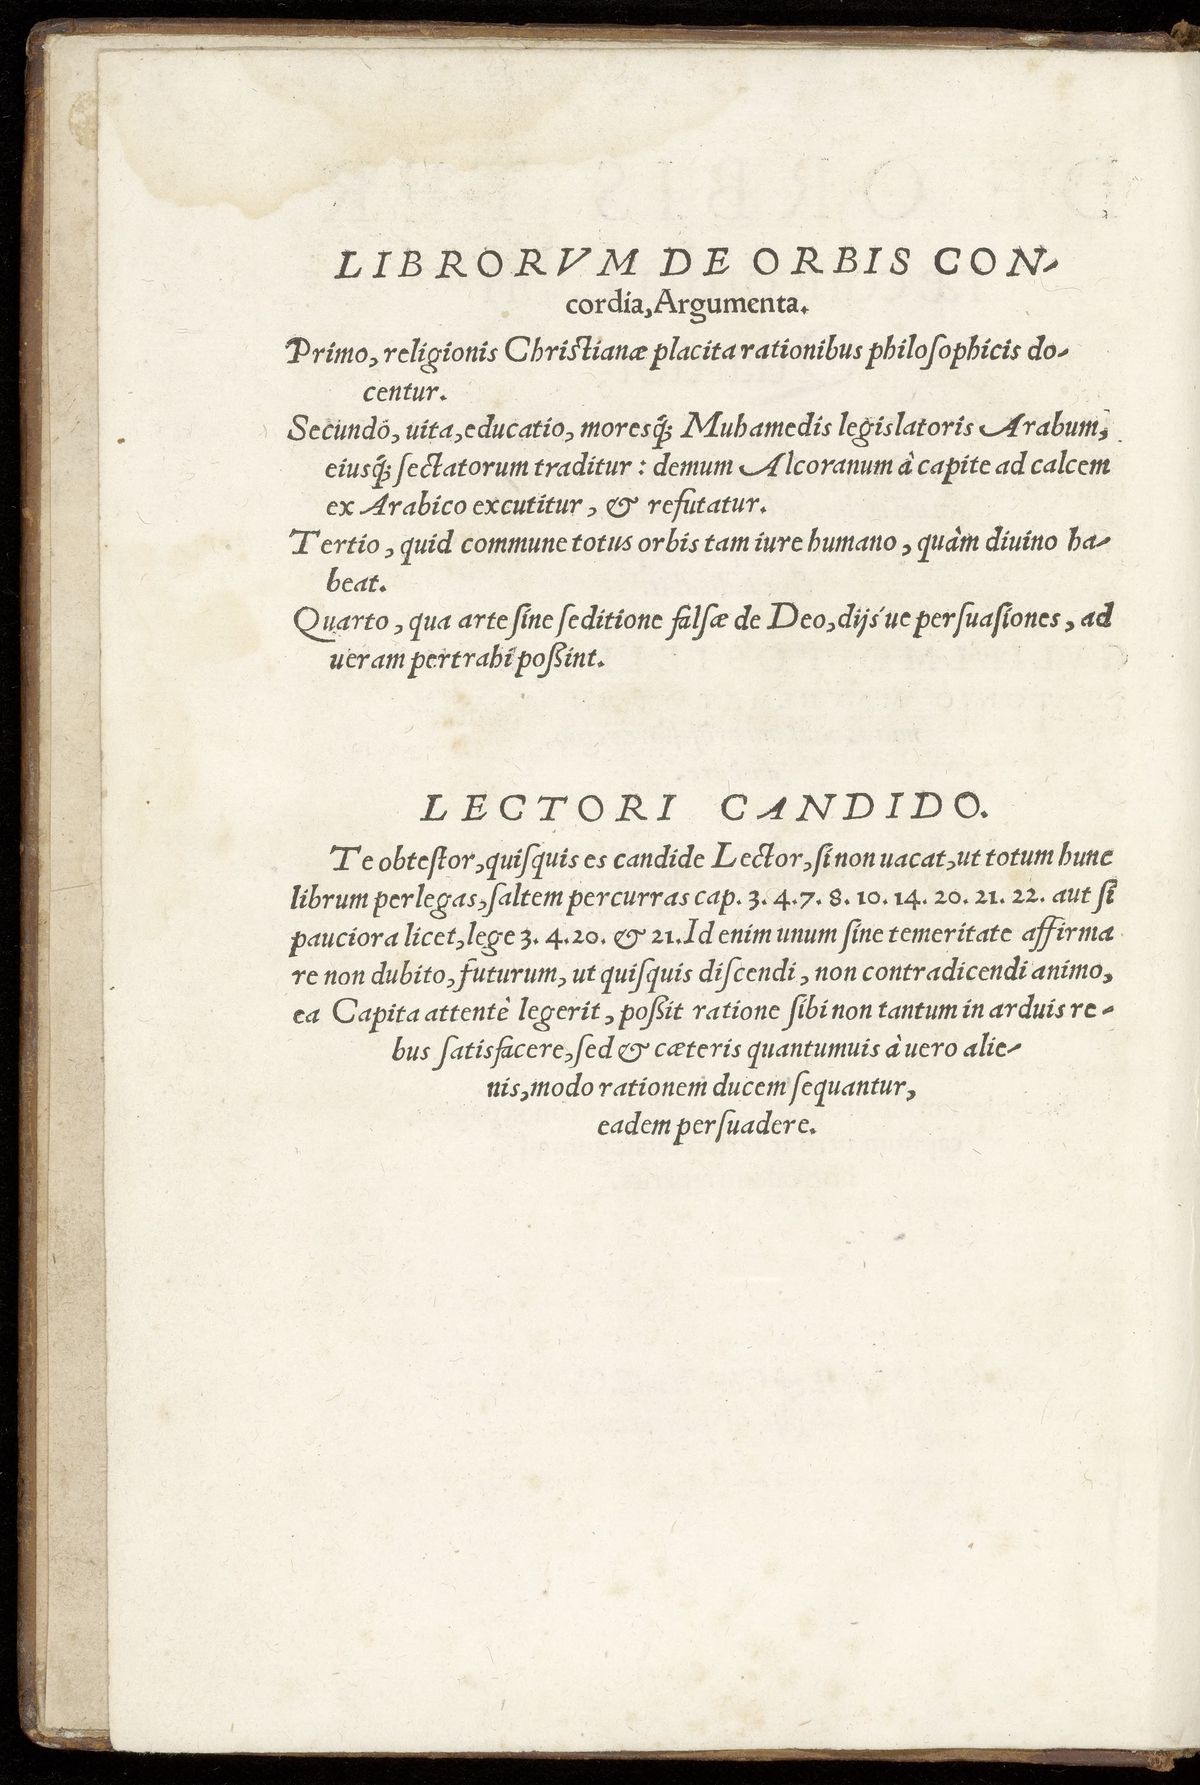 LIBRORVM DE ORBIS CON-
cordia, Argumenta.
Primo, religionis Christianæ placita rationibus philoſophicis do-
centur.
Secundò, uita, educatio, moresq́; Muhamedis legislatoris Arabum,
eiusq́; ſectatorum traditur : demum Alcoranum à capite ad calcem
ex Arabico excutitur, & refutatur.
Tertio, quid commune totus orbis tam iure humano, quàm diuino ha-
beat.
Quarto, qua arte ſine ſeditione falſæ de Deo, dijśue perſuaſiones, ad
ueram pertrahi poßint.
LECTORI CANDIDO.
Te obteſtor, quiſquis es candide Lector, ſi non uacat, ut totum hunc
librum perlegas, ſaltem percurras cap. 3. 4. 7. 8. 10. 14. 20. 21. 22. aut ſi
pauciora licet, lege 3. 4. 20. & 21. Id enim unum ſine temeritate affirma
re non dubito, futurum, ut quiſquis diſcendi, non contradicendi animo,
ea Capita attentè legerit, poßit ratione ſibi non tantum in arduis re-
bus ſatisfacere, ſed & cæteris quantumuis à uero alie-
nis, modo rationem ducem ſequantur,
eadem perſuadere.